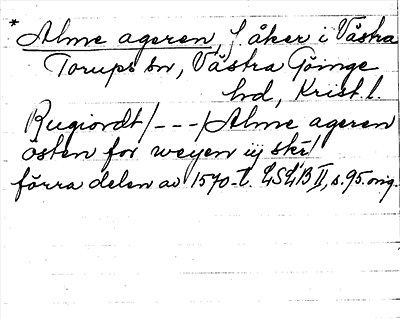 * Alme ageren, f åker i Västra
Torups sn, Västra Göinge
hd, Krist. l.
Rugiordt/---/Alme ageren
östen for weyen iij skr!
förra delen av 1570-t. LSLB II, s. 95. orig.